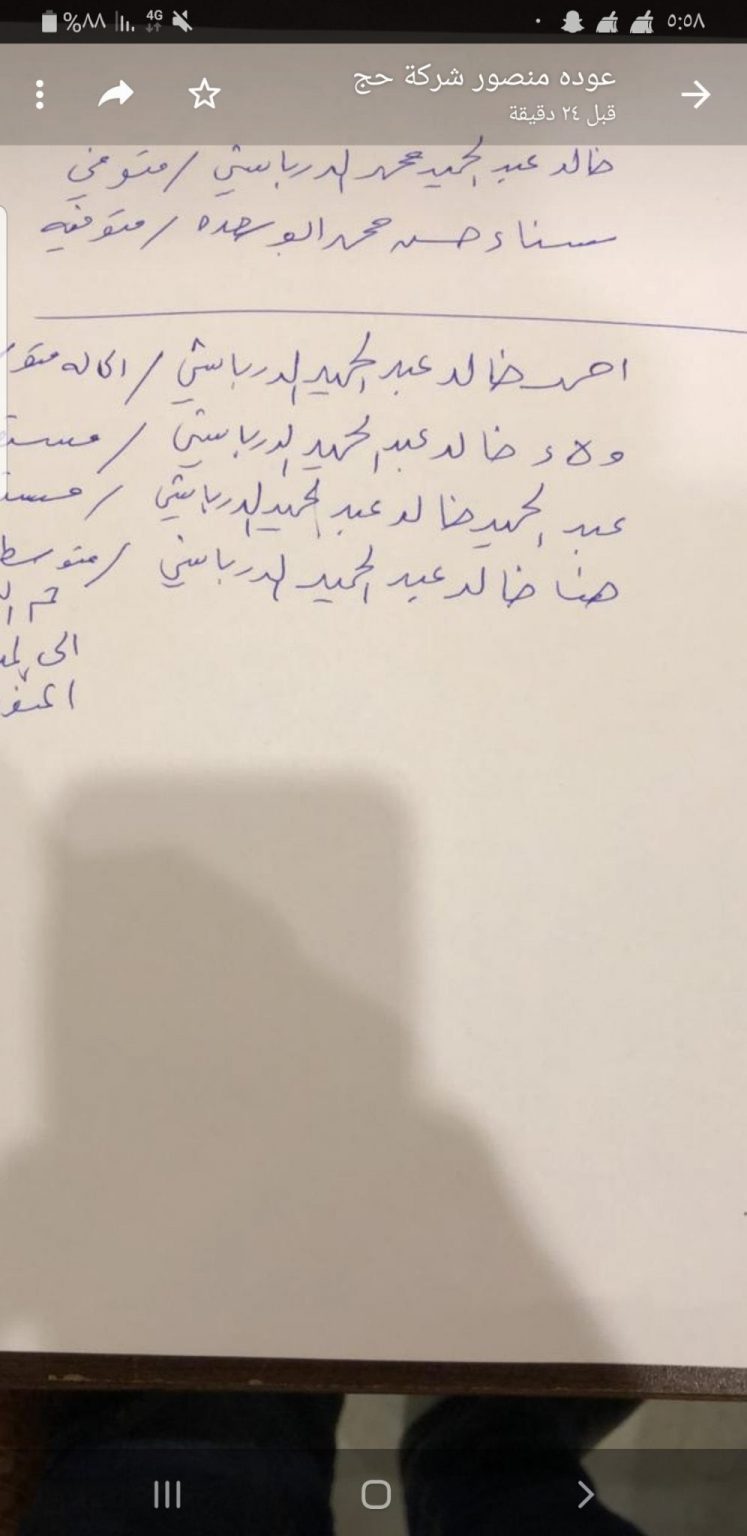 ٥:٥٨ 4G %٨٨
عوده منصور شركة حج
قبل ٢٤ دقيقة
خالد عبد الحميد محمد الدرباشي / متوفي
سناء حسن محمد ابو هده / متوفيه
احمد خالد عبد الحميد الدرباشي / الحاله
ولاء خالد عبد الحميد الدرباشي /
عبد الحميد خالد عبد الحميد الدرباشي /
هنا خالد عبد الحميد الدرباشي /
تم
الى